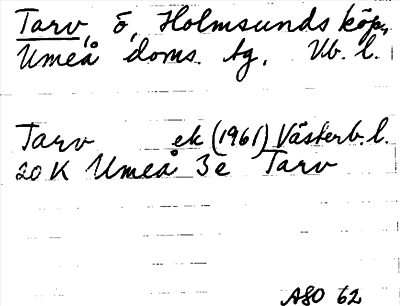 Tarv, ö, Holmsunds köp,
Umeå doms. tg, Vb. l.
Tarv ek (1961) Västerb. l.
20 K Umeå 3e Tarv
ASO 62